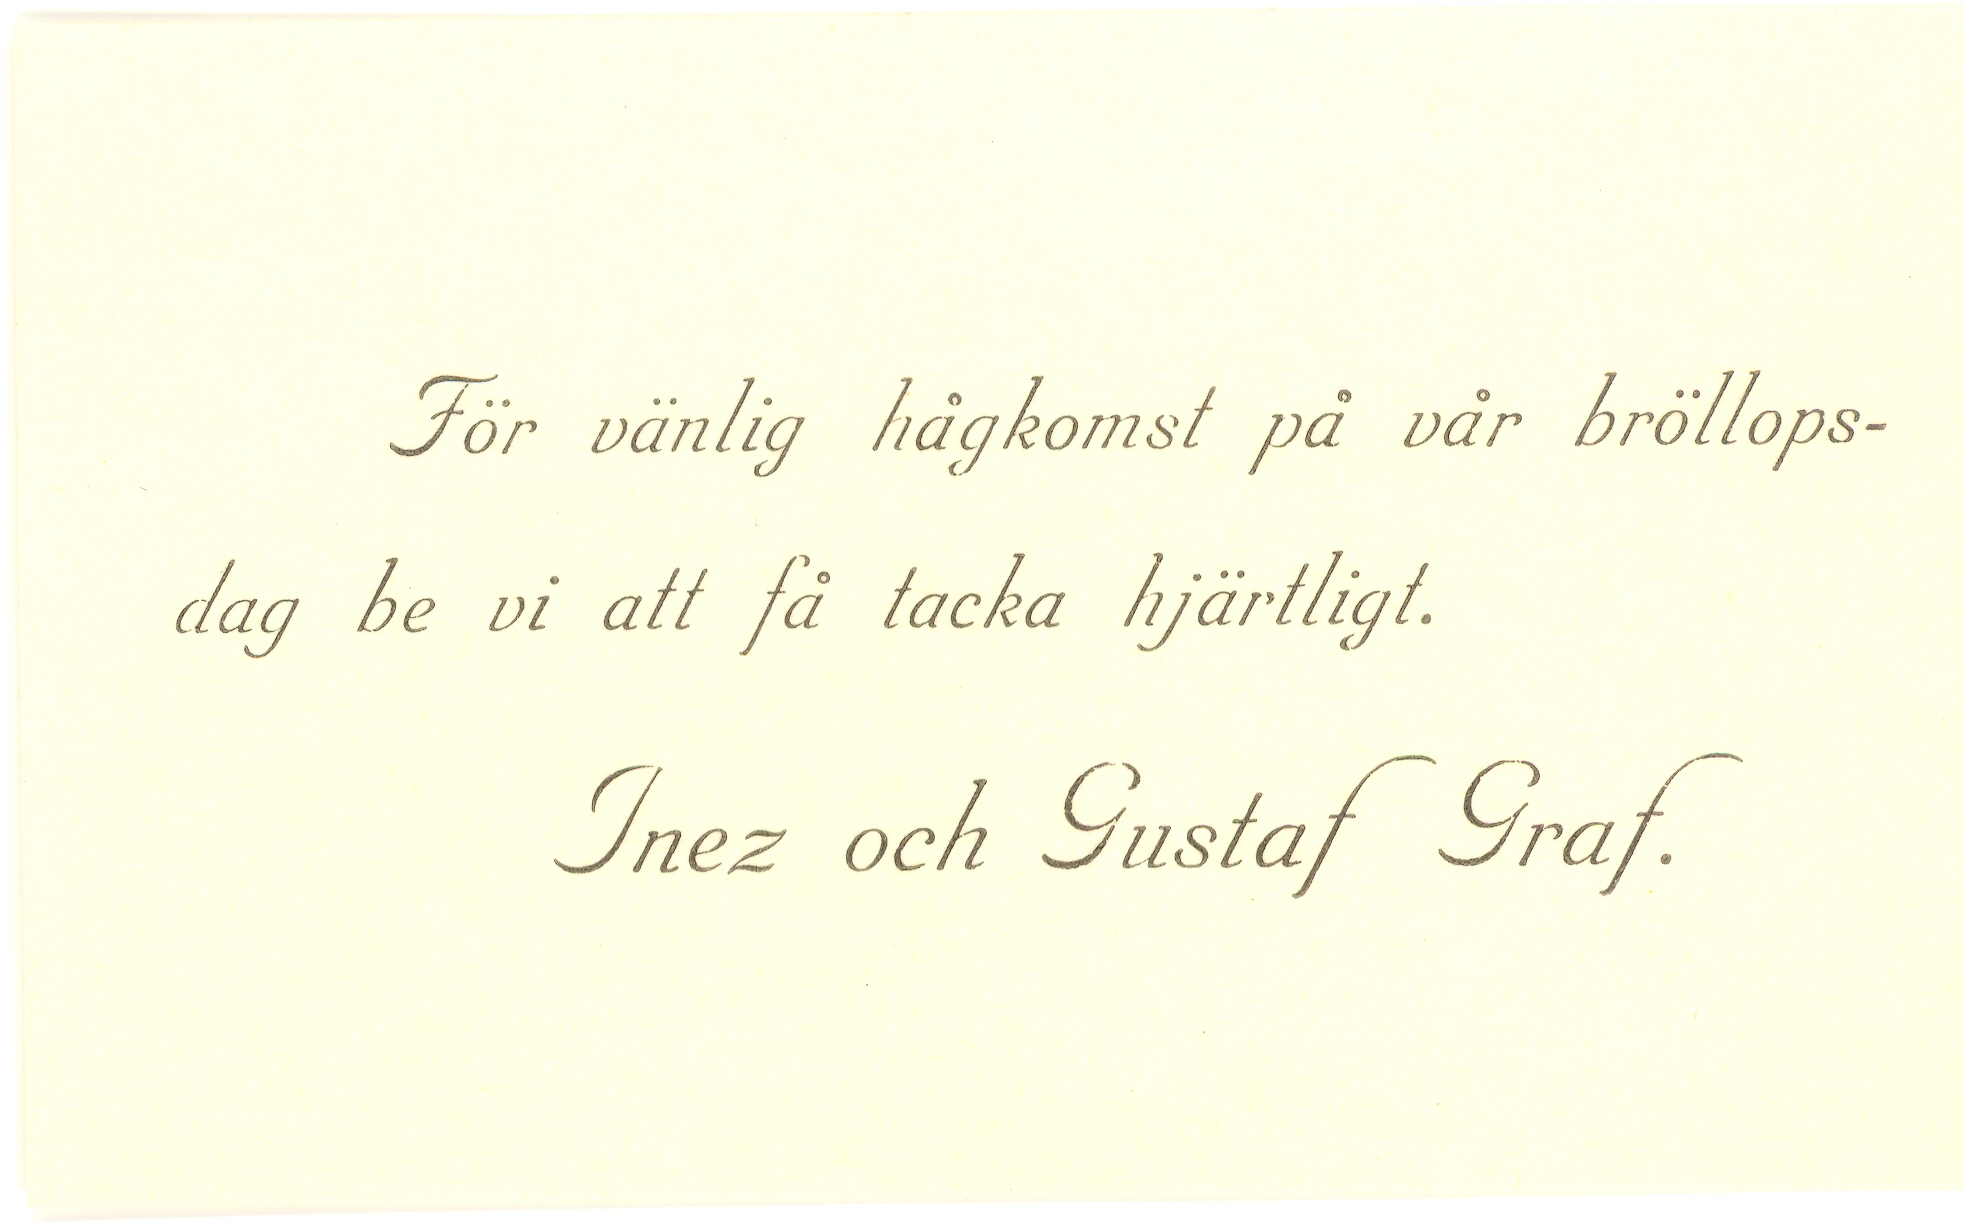 För vänlig hågkomst på vår bröllops-
dag be vi att få tacka hjärtligt.
Inez och Gustaf Graf.